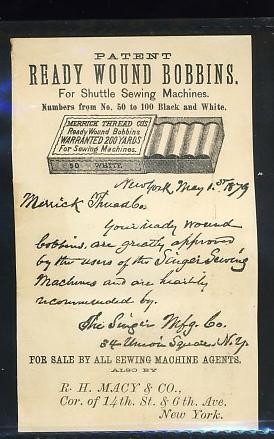 PATENT
READY WOUND BOBBINS.
For Shuttle Sewing Machines.
Numbers from No. 50 to 100 Black and White.
MERRICK THREAD CO'S
Ready Wound Bobbins
WARRANTED 200 YARDS
For Sewing Machines.
50 WHITE
New York, May 1st 1879
Merrick Thread Co.
Your ready wound
bobbins, are greatly approved
by the users of the Singer Sewing
Machines and are heartily
recommended by.
The Singer Mfg. Co.
34 Union Square, N.Y.
FOR SALE BY ALL SEWING MACHINE AGENTS.
ALSO BY
R. H. MACY & CO.,
Cor. of 14th. St. & 6th. Ave.
New York.